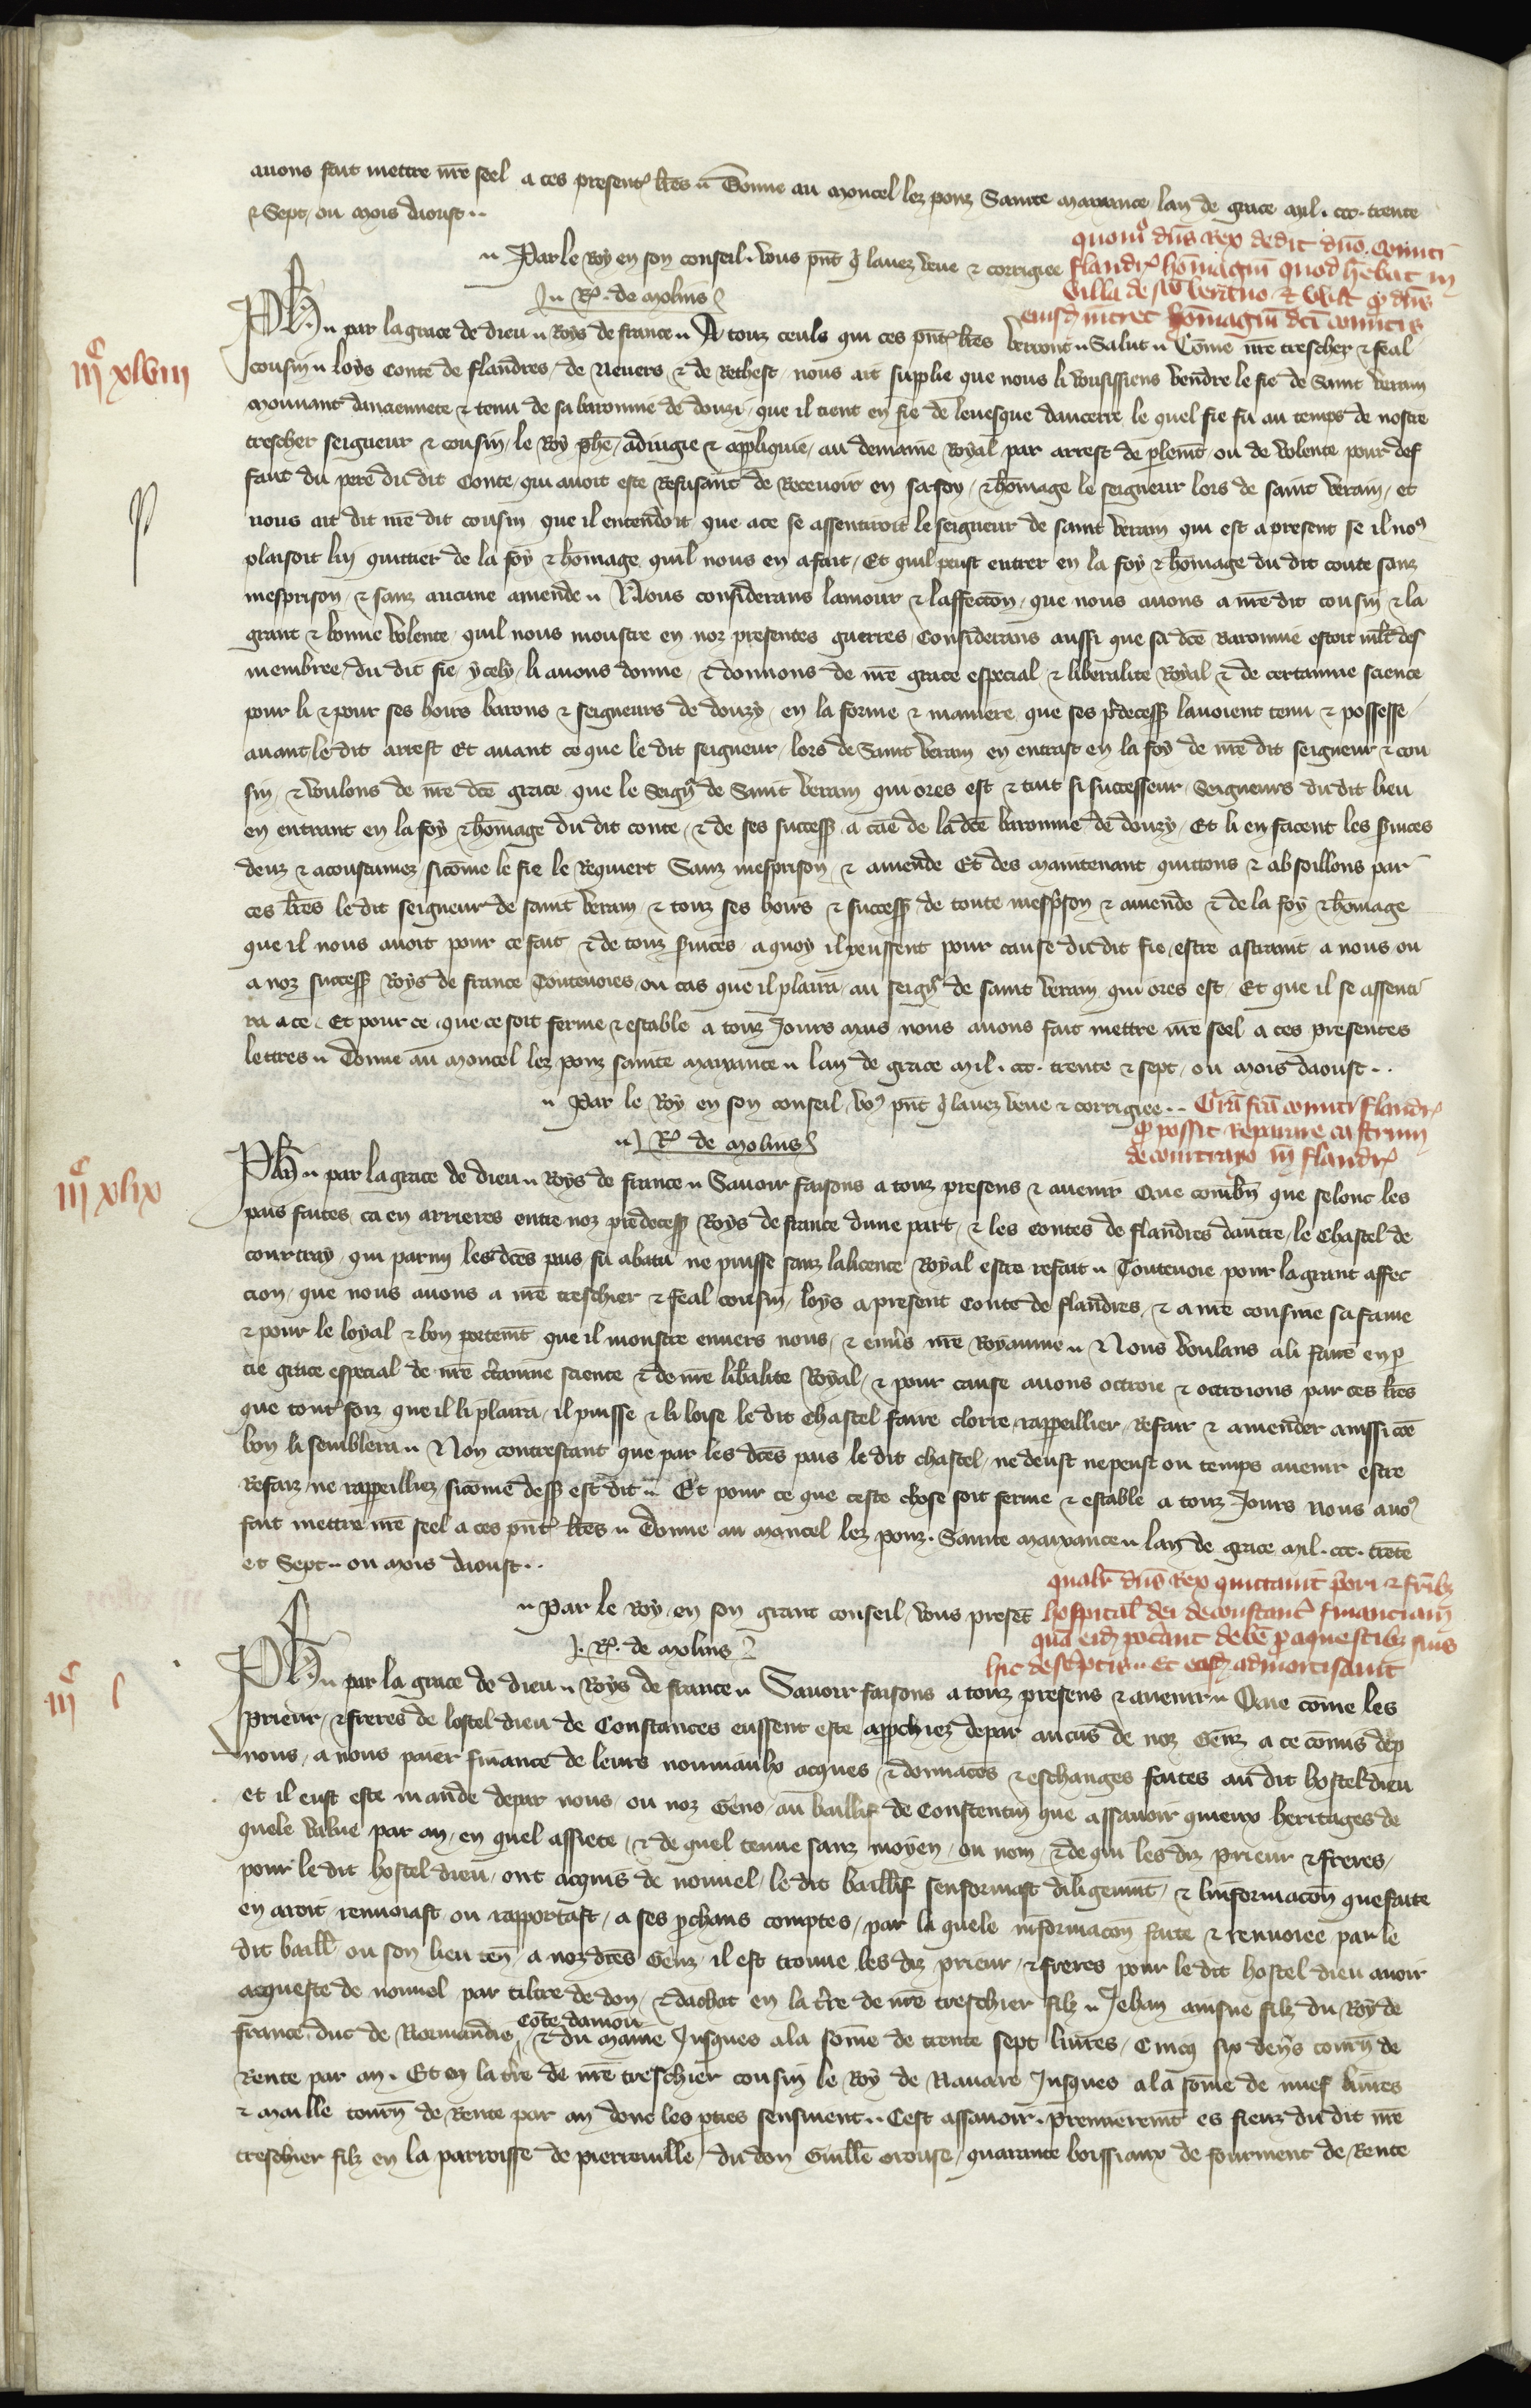 auons fait mettre nr̄e seel a ces present⁹ lr̄es ·· Donne au moncel lez ponz Sainte maxance lan de grace mil . ccc. trente
⁊ Sept / ou mois daoust ··
·· Par le Roy en son conseil . vous pn̄t q̄ lauez veue ⁊ corrigiee
·· R. de molins
quom̊ dn̄s Rex dedit dn̄o . comiti
flandr̄ hōmagiū quod hēbat in
villa de sc̄o veranno ⁊ vult q̄ dn̄s
eiusd intret hōmagiū dc̄i comitis
iiiiᶜ xlviii
Ph̄ ·· par la grace de dieu ·· Roys de france ·· A touz ceuls qui ces pn̄t lr̄es verront ·· Salut ·· Cōme nr̄e trescher ⁊ feal
cousin ·· loys Conte de flandres / de Neuers ⁊ de Rethest / nous ait supplie que nous li vousissiens rendre le fie de Saint veram
mouuant danciennete ⁊ tenu de sa baronnie de donzi / que il tient en fie de leuesque daucerre le quel fie fu au temps de nostre
trescher seigneur ⁊ cousin / le Roy ph̄e / adiugie ⁊ appliquie / au demaine Royal / par arrest de p̄lem̄t ou de volente pour def
faut du pere du dit Conte / qui auoit este Refusant de Receuoir en sa foy / ⁊ hōmage le seigneur lors de saint veram / et
nous ait dit nr̄e dit cousin / que il entendoit que a ce se assentiroit le seigneur de saint veram qui est a present se il no⁹
plaisoit luy quittier de la foy ⁊ hōmage quil nous en a fait / Et quil peust entrer en la foy ⁊ hōmage du dit conte sanz
mesprison / ⁊ sanz aucune amende ·· Nous considerans lamour ⁊ laffecc̄on / que nous auons a nr̄e dit cousin ⁊ la
grant ⁊ bonne volente / quil nous monstre en noz presentes guerres / Considerans aussi que sa dc̄e Baronnie estoit ml̄t des
membree / du dit fie / ycely / li auons donne / ⁊ donnons de nr̄e grace especial ⁊ liberalite Royal ⁊ de certainne science
pour li ⁊ pour ses hoirs barons ⁊ seigneurs de donzy / en la forme ⁊ maniere que ses p̄decess̄ lauoient tenu ⁊ possesse
auant le dit arrest Et auant ce que le dit seigneur / lors de Saint veram en entrast en la foy de nr̄e dit seigneur ⁊ cou
sin / ⁊ voulons de nr̄e dc̄e grace que le Seigr̄ de Saint veram qui ores est ⁊ tuit si successeur / Seigneurs du dit lieu
en entrant en la foy ⁊ hōmage du dit conte / ⁊ de ses success̄ a cāe de la dc̄e baronnie de donzy / Et li en facent les s̄uices
deuz ⁊ acoustumez / sicōme le fie le Requiert Sanz mesprison ⁊ amende Et des maintenant quittons ⁊ absoillons par
ces lr̄es le dit seigneur de saint veram / ⁊ touz ses hoirs ⁊ success̄ de toute mesp̄son ⁊ amende ⁊ de la foy ⁊ hōmage
que il nous auoit pour ce fait / ⁊ de touz s̄uices / a quoy il peussent pour cause du dit fie / estre astraint a nous ou
a noz success̄ Roys de france Touteuoies / ou cas que il plaira / au seigr̄ de saint veram / qui ores est / Et que il se assenti
ra a ce . Et pour ce que ce soit ferme ⁊ estable a touz Jours mais nous auons fait mettre nr̄e seel a ces presentes
lettres ·· Donne au moncel lez ponz sainte maxance ·· lan de grace mil . ccc. trente ⁊ sept / ou mois daoust ··
·· Par le Roy en son conseil / vo⁹ pn̄t q̄ lauez veue ⁊ corrigiee ··
·· R. de molins
Gr̄a fc̄a comiti flandr̄
q̄ possit reparare castrum
de courtrayo in flandr̄
iiiiᶜ xlix
Ph̄ ·· par la grace de dieu ·· Roys de france ·· Sauoir faisons a touz presens ⁊ auenir Que combn̄ que selonc les
pais faites / ca en arrieres entre noz predecess̄ Roys de france dune part / ⁊ les Contes de flandres dautre / le Chastel de
courtray / qui parmi les dc̄es pais fu abatu ne puisse sanz la licence Royal estre refait ·· Touteuoie pour la grant affec
cion / que nous auons a nr̄e treschier ⁊ feal cousin / loys a present Conte de flandres / ⁊ a nr̄e cousine sa fame
⁊ pour le loyal ⁊ bon portem̄t que il monstre enuers nous / ⁊ enu̾s nr̄e Royaume ·· Nous voulans a li faire en p̄
tie grace especial de nr̄e c̾tainne science ⁊ de nr̄e lib̾alite Royal / ⁊ pour cause auons octroie ⁊ octroions par ces lr̄es
que toutefoiz que il li plaira / il puisse ⁊ li loise le dit Chastel faire clorre rappeillier / Refair ⁊ amender aussi cōe
bon li semblera ·· Non contrestant que par les dc̄es pais le dit chastel / ne deust ne peust ou temps auenir estre
Refaiz / ne rappeilliez sicōme dess̄ est dit ·· Et pour ce que ceste chose soit ferme ⁊ estable a touz Jours nous auo⁹
fait mettre nr̄e seel a ces pn̄t lr̄es ·· Donne au moncel lez ponz . Sainte maxance ·· lan de grace mil . ccc. trēte
et Sept ·· ou mois daoust ··
·· Par le Roy / en son grant conseil / vous presēt
R. de molins
qualr̄ dn̄s Rex quictauit p̄ori ⁊ fr̄ibz
hospital̄ dei de constanc̄ financiam
quā eid̄ pot̾ant debē p̄ aquestibz suis
hic descriptis ·· Et eosd̄ admortisauit
iiiiᶜ l
Ph̄ ·· par la grace de dieu ·· Roys de france ·· Sauoir faisons a touz presens ⁊ auenir ·· Que cōme les
prieur / ⁊ freres de lostel dieu de Constances eussent este app̄chiez depar aucūs de noz Genz a ce cōmis dep̄
nous / a nous paier finance de leurs nouuiaulx acques / ⁊ donnac̄os ⁊ eschanges faites au dit hostel dieu
et il eust este mande depar nous / ou noz Gens / au baillif de Constentin que assauoir quieux heritages de
quele value par an / en quel assiete / ⁊ de quel tenue sanz moyen / ou non / ⁊ de qui les diz prieur ⁊ freres /
pour le dit hostel dieu / ont acquis de nouuel / le dit baillif senformast diligenm̄t / ⁊ linformac̄on que faite
en aroit / renuoiast ou rapportast / a ses p̄chans comptes / par la quele informac̄on faite ⁊ renuoiee par le
dit baill̄ ou son lieu ten̄ / a noz dc̄es Genz / il est trouue les diz prieur / ⁊ freres pour le dit hostel dieu auoir
acqueste de nouuel par tiltre de don / ⁊ dachat en la t̾re de nr̄e treschier filz ·· Jehan ainsne filz du Roy de
france . duc de Normandie cōte daniou ⁊ du maine Jusques a la sōme de trente sept liures / Cinq solz six den̾s tourn̄ de
Rente par an . Et en la t̾re de nr̄e treschier cousin le Roy de Nauare Jusques a la sōme de nuef liures
⁊ maille tourn̄ de Rente par an dont les p̄ties sensiuent ·· Cest assauoir . premierem̄t es fieuz du dit nr̄e
treschier filz en la parroisse de pierreuille / du don Guill̄e orouse / quarante boissiaux de fourment de Rente